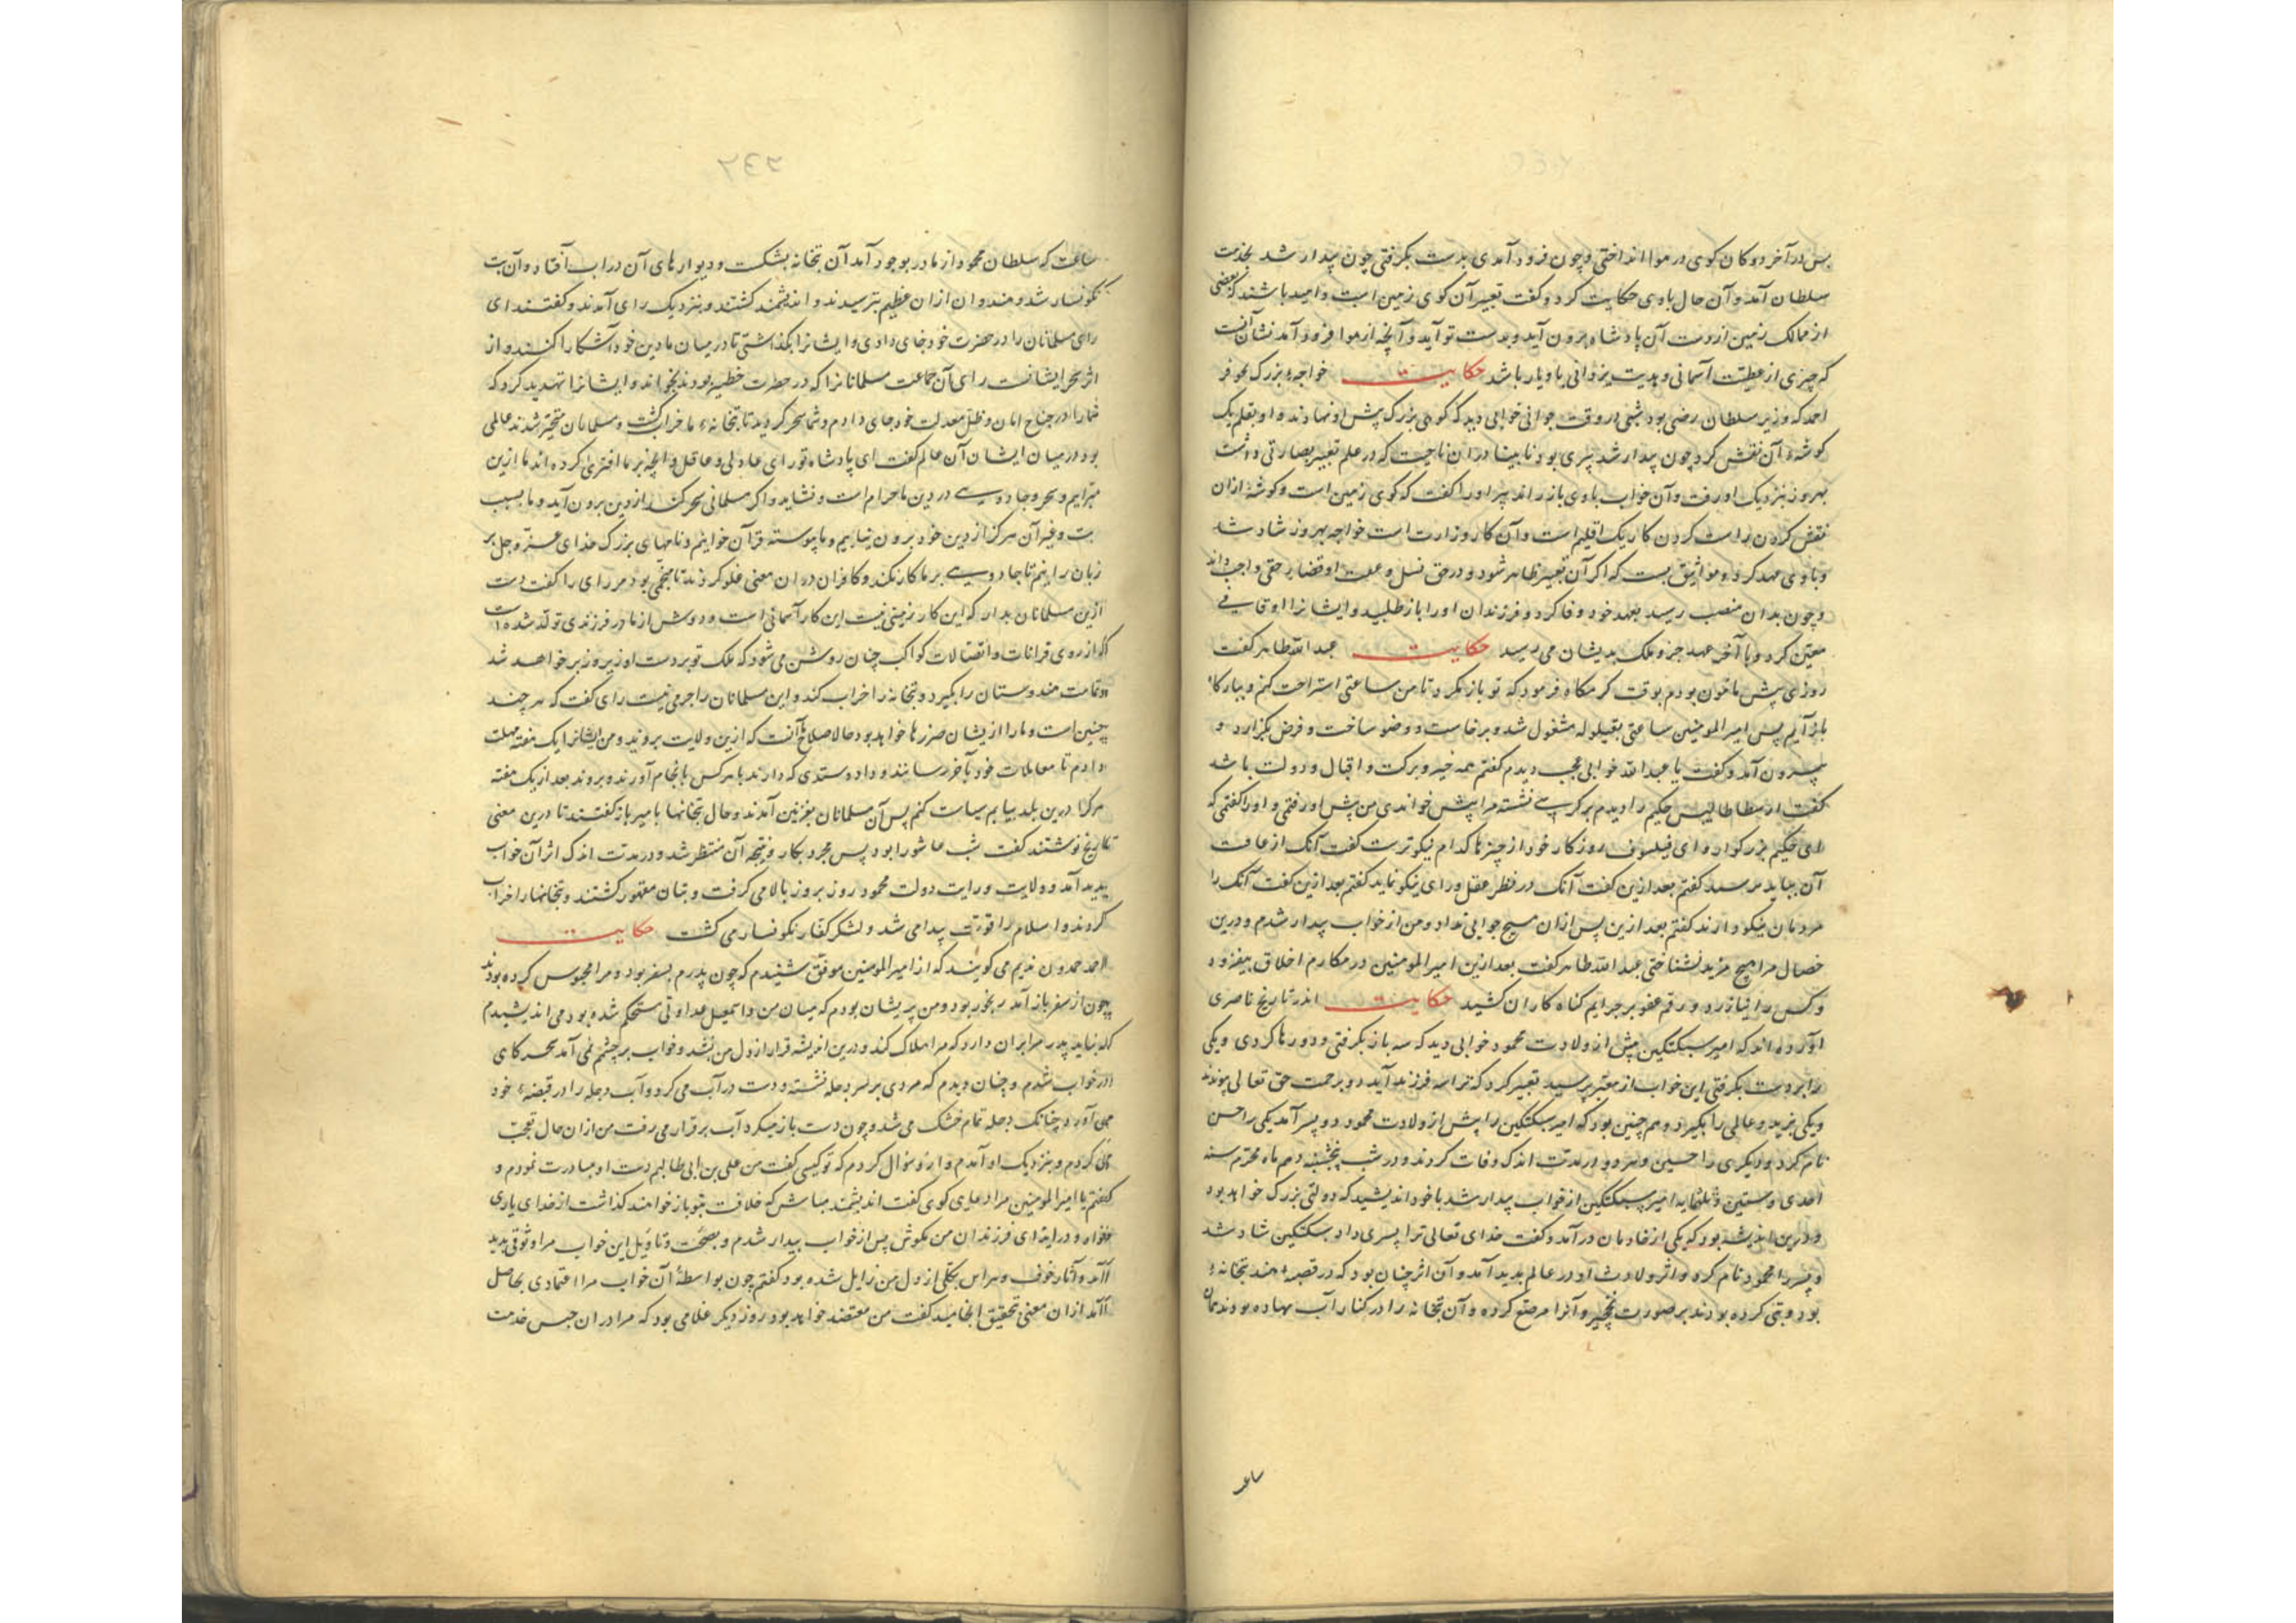 پس در آخر دوکان کوی در هوا انداختی و چون فرود آمدی بدست بگرفتی چون بیدار شد بخدمت
سلطان آمد و آن حال باوی حکایت کرد و گفت تعبیر آن کوی زمین است و امید باشند که بعضی
از ممالک زمین از دست آن پادشاه برون آید و بدست تو آید و آنچه از هوا فرود آمد نشان آنست
که چیزی از عطیت آسمانی و هدیت یزدانی باو یار باشد حکایت خواجه بزرگ
احمد که وزیر سلطان رضی بود شبی در وقت جوانی خوابی دید که کوی بزرگ پیش او نهادندی و او بقلم یک
کوشه آن نقش کرد چون بیدار شد پیری بود نابینا در آن ناحیت که در علم تعبیر بصارتی داشت
بهروز بنزدیک او رفت و آن خواب باوی باز راند پیر او را گفت که کوی زمین است و کوشه ازان
نقش کردن راست کردن کار یک اقلیم است و آن کار وزارت است خواجه بهروز شاد شد
و باوی عهد کرد و مواثیق بست که اگر آن تعبیر ظاهر شود و در حق نسل و عقب او قضاء حقی واجب داند
و چون بدان منصب رسید بعهد خود وفا کرد و فرزندان او را باز طلبید و ایشانرا اوقافی
معین کرد و تا آخر عهد خیر و ملک بدیشان می رسید حکایت عبد الله طاهر گفت
روزی پیش مامون بودم بوقت گرمگاه فرمود که تو باز گرد تا من ساعتی استراحت کنم و بیارگاه
باز آیم پس امیر المومنین ساعتی بقیلوله مشغول شد و برخاست و وضو ساخت و فرض بگزارد و
بیرون آمد و گفت یا عبد الله خوابی عجب دیدم گفتم همه خیر و برکت و اقبال و دولت باشد
گفت ارسطاطالیس حکیم را دیدم بر کرسی نشسته مرا پیش خواندی من پیش او رفتم و او را گفتم که
ای حکیم بزرگوار و ای فیلسوف روزگار خود از چیزها کدام نیکوترست گفت آنک از عاقبت
آن نباید ترسید گفتم بعد ازین گفت آنک در نظر عقل و رای نیکو نماید گفتم بعد ازین گفت آنک را
مردمان نیکو دارند گفتم بعد ازین پس ازان هیچ جوابی نداد و من از خواب بیدار شدم و درین
خصال مرا هیچ مزید نشناختی عبد الله طاهر گفت بعد ازین امیر المومنین در مکارم اخلاق بیفزود
و کس را نیازرد و رقم عفو بر جرایم گناه کاران کشید حکایت اندر تاریخ ناصری
آورده اند که امیر سبکتکین پیش از ولادت محمود خوابی دید که سه باز بگرفتی و دو رها کردی و یکی
را بدست بگرفتی این خواب از معبر پرسید تعبیر کرد که ترا سه فرزند آید دو برحمت حق تعالی پیوندند
و یکی بزید و عالمی را بگیرد و هم چنین بود که امیر سبکتکین را پیش از ولادت محمود دو پسر آمد یکی را حسن
نام کرد و دیگری را حسین و هر دو در مدت اندک وفات کردند و در شب پنجشنبه دهم ماه محرم سنه
احدی و ستین و ثلثمایه امیر سبکتکین از خواب بیدار شد با خود اندیشید که دولتی بزرگ خواهد بود
و درین اندیشه بود که یکی از خادمان در آمد و گفت خدای تعالی ترا پسری داد سبکتکین شاد شد
و پسر را محمود نام کرد و اثر ولادت او در عالم بدید آمد و آن اثر چنان بود که در قصبه هند بتخانه
بود و بتی کرده بودند بر صورت و آنرا مرصع کرده و آن بتخانه را در کنار آب نهاده بودند همان
ساعت که سلطان محمود از مادر بوجود آمد آن بتخانه بشکست و دیوارهای آن در اب افتاد و آن بت
نکونسار شد و هندوان ازان عظیم بترسیدند و اندیشمند گشتند و بنزدیک رای آمدند و گفتند ای
رای مسلمانان را در حضرت خود جای دادی و ایشانرا بگذاشتی تا در میان ما دین خود آشکارا کنند و از
اثر سحر ایشانست رای آن جماعت مسلمانانرا که در حضرت خطیر بودند بخواند و ایشانرا تهدید کرد که
شما را در جناح امان و ظل معدلت خود جای دادم و شما سحر کردید تا بتخانه ما خراب گشت و مسلمانان متحیر شدند عالمی
بود در میان ایشان آن عالم گفت ای پادشاه تو رای عادلی و عاقلی و آنچه بر ما افتری کرده اند ما ازین
مبرایم و سحر و جادویی در دین ما حرام است و نشاید و اگر مسلمانی سحر کند از دین برون آید و ما بسبب
بت و غیر آن هرگز از دین خود برون نیاییم و ما پیوسته قرآن خوانیم و نامهای بزرگ خدای عز و جل بر
زبان رانیم تا جادویی بر ما کار نکند و کافران در آن معنی غلو کردند تا منجمی بود مر رای را گفت دست
ازین مسلمانان بدار که این کار زمینی نیست این کار آسمانی است و دوش از مادر فرزندی تولد شده است
که از روی قرانات و اتصالات کواکب چنان روشن می شود که ملک تو بر دست او زیر و زبر خواهد شد
و تمامت هندوستان را بگیرد و بتخانه را خراب کند و این مسلمانان را جرمی نیست رای گفت که هر چند
چنین است و ما را ازیشان ضررها خواهد بود حالا صلاح آنست که ازین ولایت بروند و من ایشانرا یک هفته مهلت
دادم تا معاملات خود بآخر رسانند و داد و ستدی که دارند با هر کس بانجام آورند و بروند بعد از یک هفته
هر کرا درین بلد بیابم سیاست کنم پس آن مسلمانان بغزنین آمدند و حال بتخانها با میر باز گفتند تا درین معنی
تاریخ نوشتند گفت شب عاشورا بود پس محمود بکار و نتیجه آن منتظر شد و در مدت اندک اثر آن خواب
پدید آمد و ولایت و رایت دولت محمود روز بروز بالا می گرفت و بتان مقهور گشتند و بتخانها را خراب
کردند و اسلام را قوت پیدا می شد و لشکر کفار نکونسار می گشت حکایت
احمد حمدون ندیم می گویند که از امیر المومنین موفق شنیدم که چون پدرم بسفر بود و مرا محبوس کرده بودند
چون از سفر باز آمد رنجور بود و من پریشان بودم که میان من و اسمعیل عداوتی مستحکم شده بود می اندیشیدم
که نباید پدر مرا بران دارد که مرا هلاک کند و درین اندیشه قرار از دل من بشد و خواب بر چشم نمی آمد سحرگای
در خواب شدم و چنان دیدم که مردی بر سر دجله نشسته و دست در آب می کرد و آب دجله را در قبضه خود
می آورد چنانک دجله تمام خشک می شد و چون دست باز میکرد آب برقرار می رفت من ازان حال تعجب
می کردم و بنزدیک او آمدم و ازو سؤال کردم که تو کیستی گفت من علی بن ابی طالبم دست او مبادرت نمودم و
گفتم یا امیر المومنین مرا دعای گوی گفت اندیشمند مباش که خلافت بتو باز خواهند گذاشت از خدای یاری
خواه و در ایذای فرزندان من مکوش پس از خواب بیدار شدم و بصحت و تاویل این خواب مرا وثوقی پدید
آمد و آثار خوف و هراس بکلی از دل من زایل شده بود گفتم چون بواسطه آن خواب مرا اعتمادی بحاصل
آمد ازان معنی تحقیق انجامید گفت من معتضد خواهد بود روز دیگر غلامی بود که مرا در آن حبس خدمت